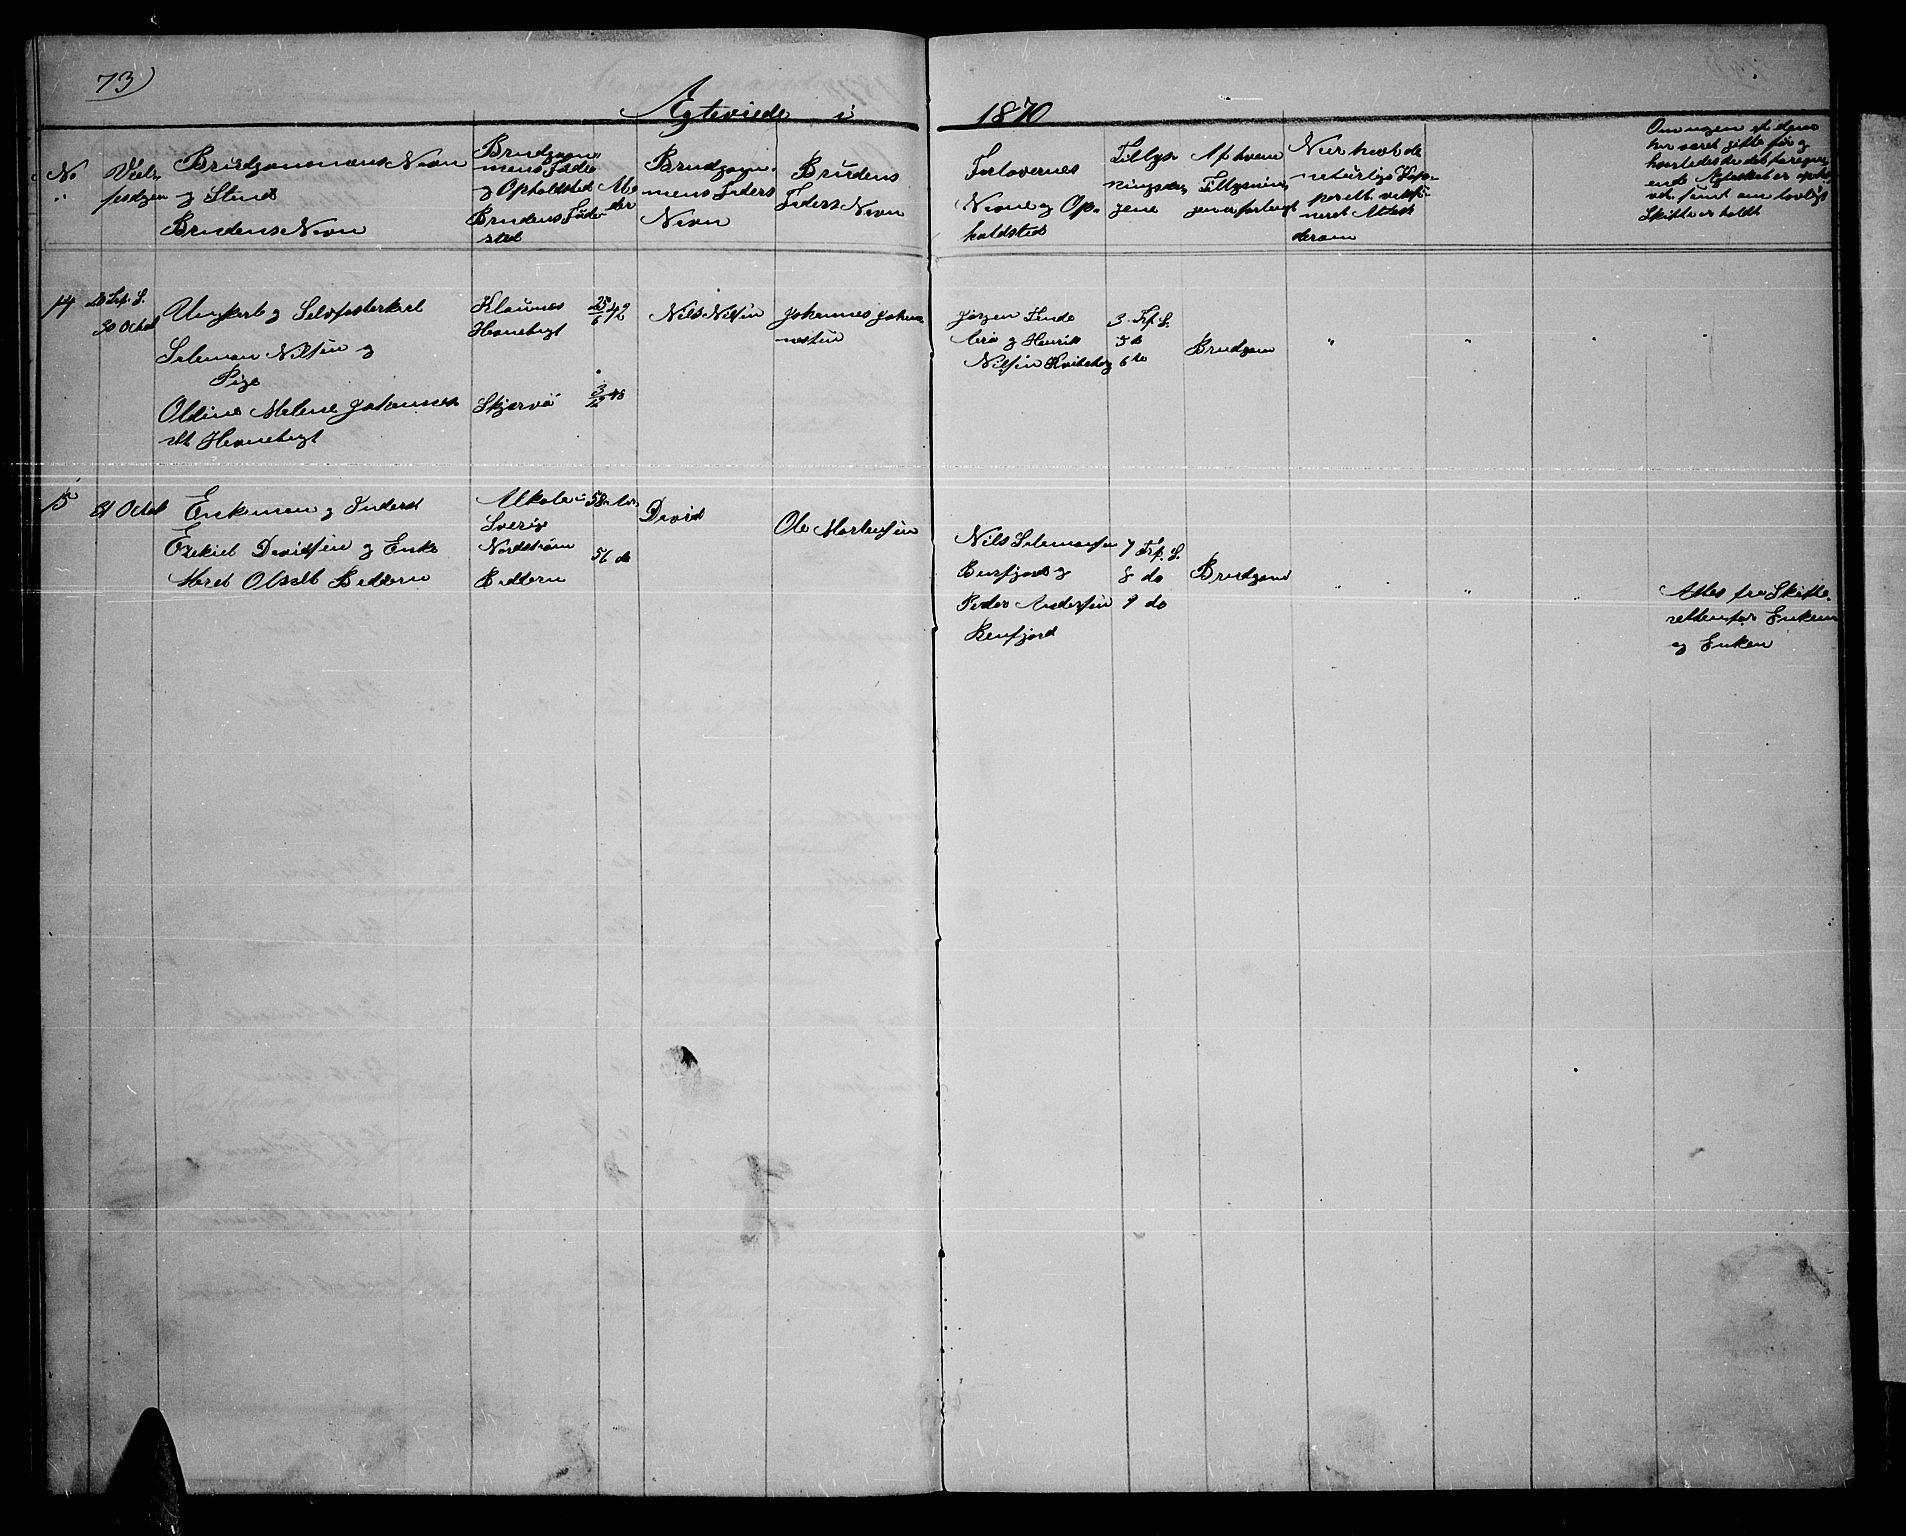 73)
Ægteviede i 1870
No
Viel-
sesdagen
Brudgommens Navn
og Stand
Brudens Navn
Brudgom-
mens Føde
og Opholdsted
Brudens Føde-
sted
Al-
der
Brudgom-
mens Faders
Navn
Brudens
Faders Navn
Forlovernes
Navne og Op-
holdsted
Tillys-
ningsda-
gene
Af hvem
Tillysnin-
gen er forlangt
Naar havt de
naturlige Kop-
per ell. vakci-
neret Attest
derom
Om nogen af dem
har været gifte før og
hvorledes det foregaa-
ende Ægteskab er ophæ-
vet, samt om lovligt
Skifte er holdt
14
20 Trf. S.
30 Octob
Ungkarl og Selvfosterkarl
Salamon Nilsen og
Pige
Oldine Malene Johannes
dtr Havnebugt
Klaunes
Havnebugt
Skjærvø
25/6 42
3/12 48
Nils Nilsen
Johannes Johan-
nesen
Jørgen
og Henrik
Nilsen Kvitebag
3 Trf. S.
5 do
6 do
Brudgom
"
"
"
"
15
31 Octob
Enkemand og Inderst
Ezekiel Davidsen og Enke
Maret Olsdtr Baddern
Sverig
Nordstrøm
Baddern
58 Aar
56 do
David
Ole Mortensen
Nils Salamonsen
Burfjord og
Peder Andersen
Burfjord
7 Trf. S.
8 do
9 do
Brudgom
"
"
"
Attest fra Skifte-
retten for Enkem
og Enken